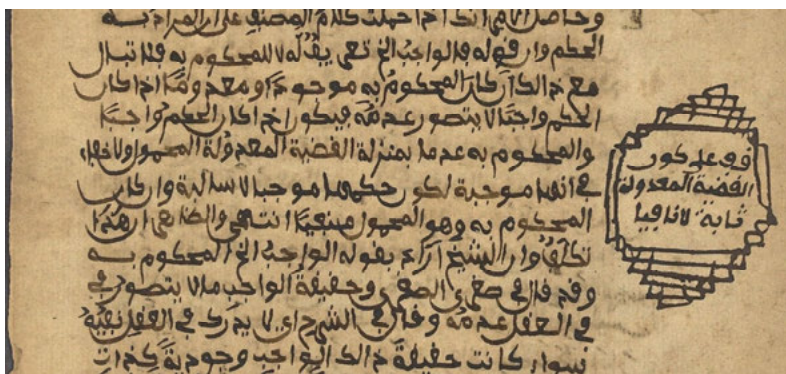 وحاصل انك اذا حملت كلام المصنف على ان المراد به
الحكم وان قوله فالواجب الخ للمحكوم به فلا تبال
مع ذلك اكان المحكوم به موجودا او معدوما اذا كان
الحكم واجبا لا يتصور عدمه فيكون اذا كان الحكم واجبا
والمحكوم به عدما بمنزلة القضية المعدولة المحمول ولا خفاء
في انها موجبة لكون حكمها موجبا لا سالبة وان كان
المحكوم به وهو المحمول منفيا انتهى والظاهر ان هذا
تكلف وان الشيخ اراد بقوله الواجب الخ المحكوم به
وقد قال في صغرى الصغرى وحقيقة الواجب ما لا يتصور في
في العقل عدمه وقال في الشرح اي لا يدرك في العقل نفيه
سواء كانت حقيقة ذلك الواجب وجودية كذات
قف على كون
القضية المعدولة
ثابة لا نافيا